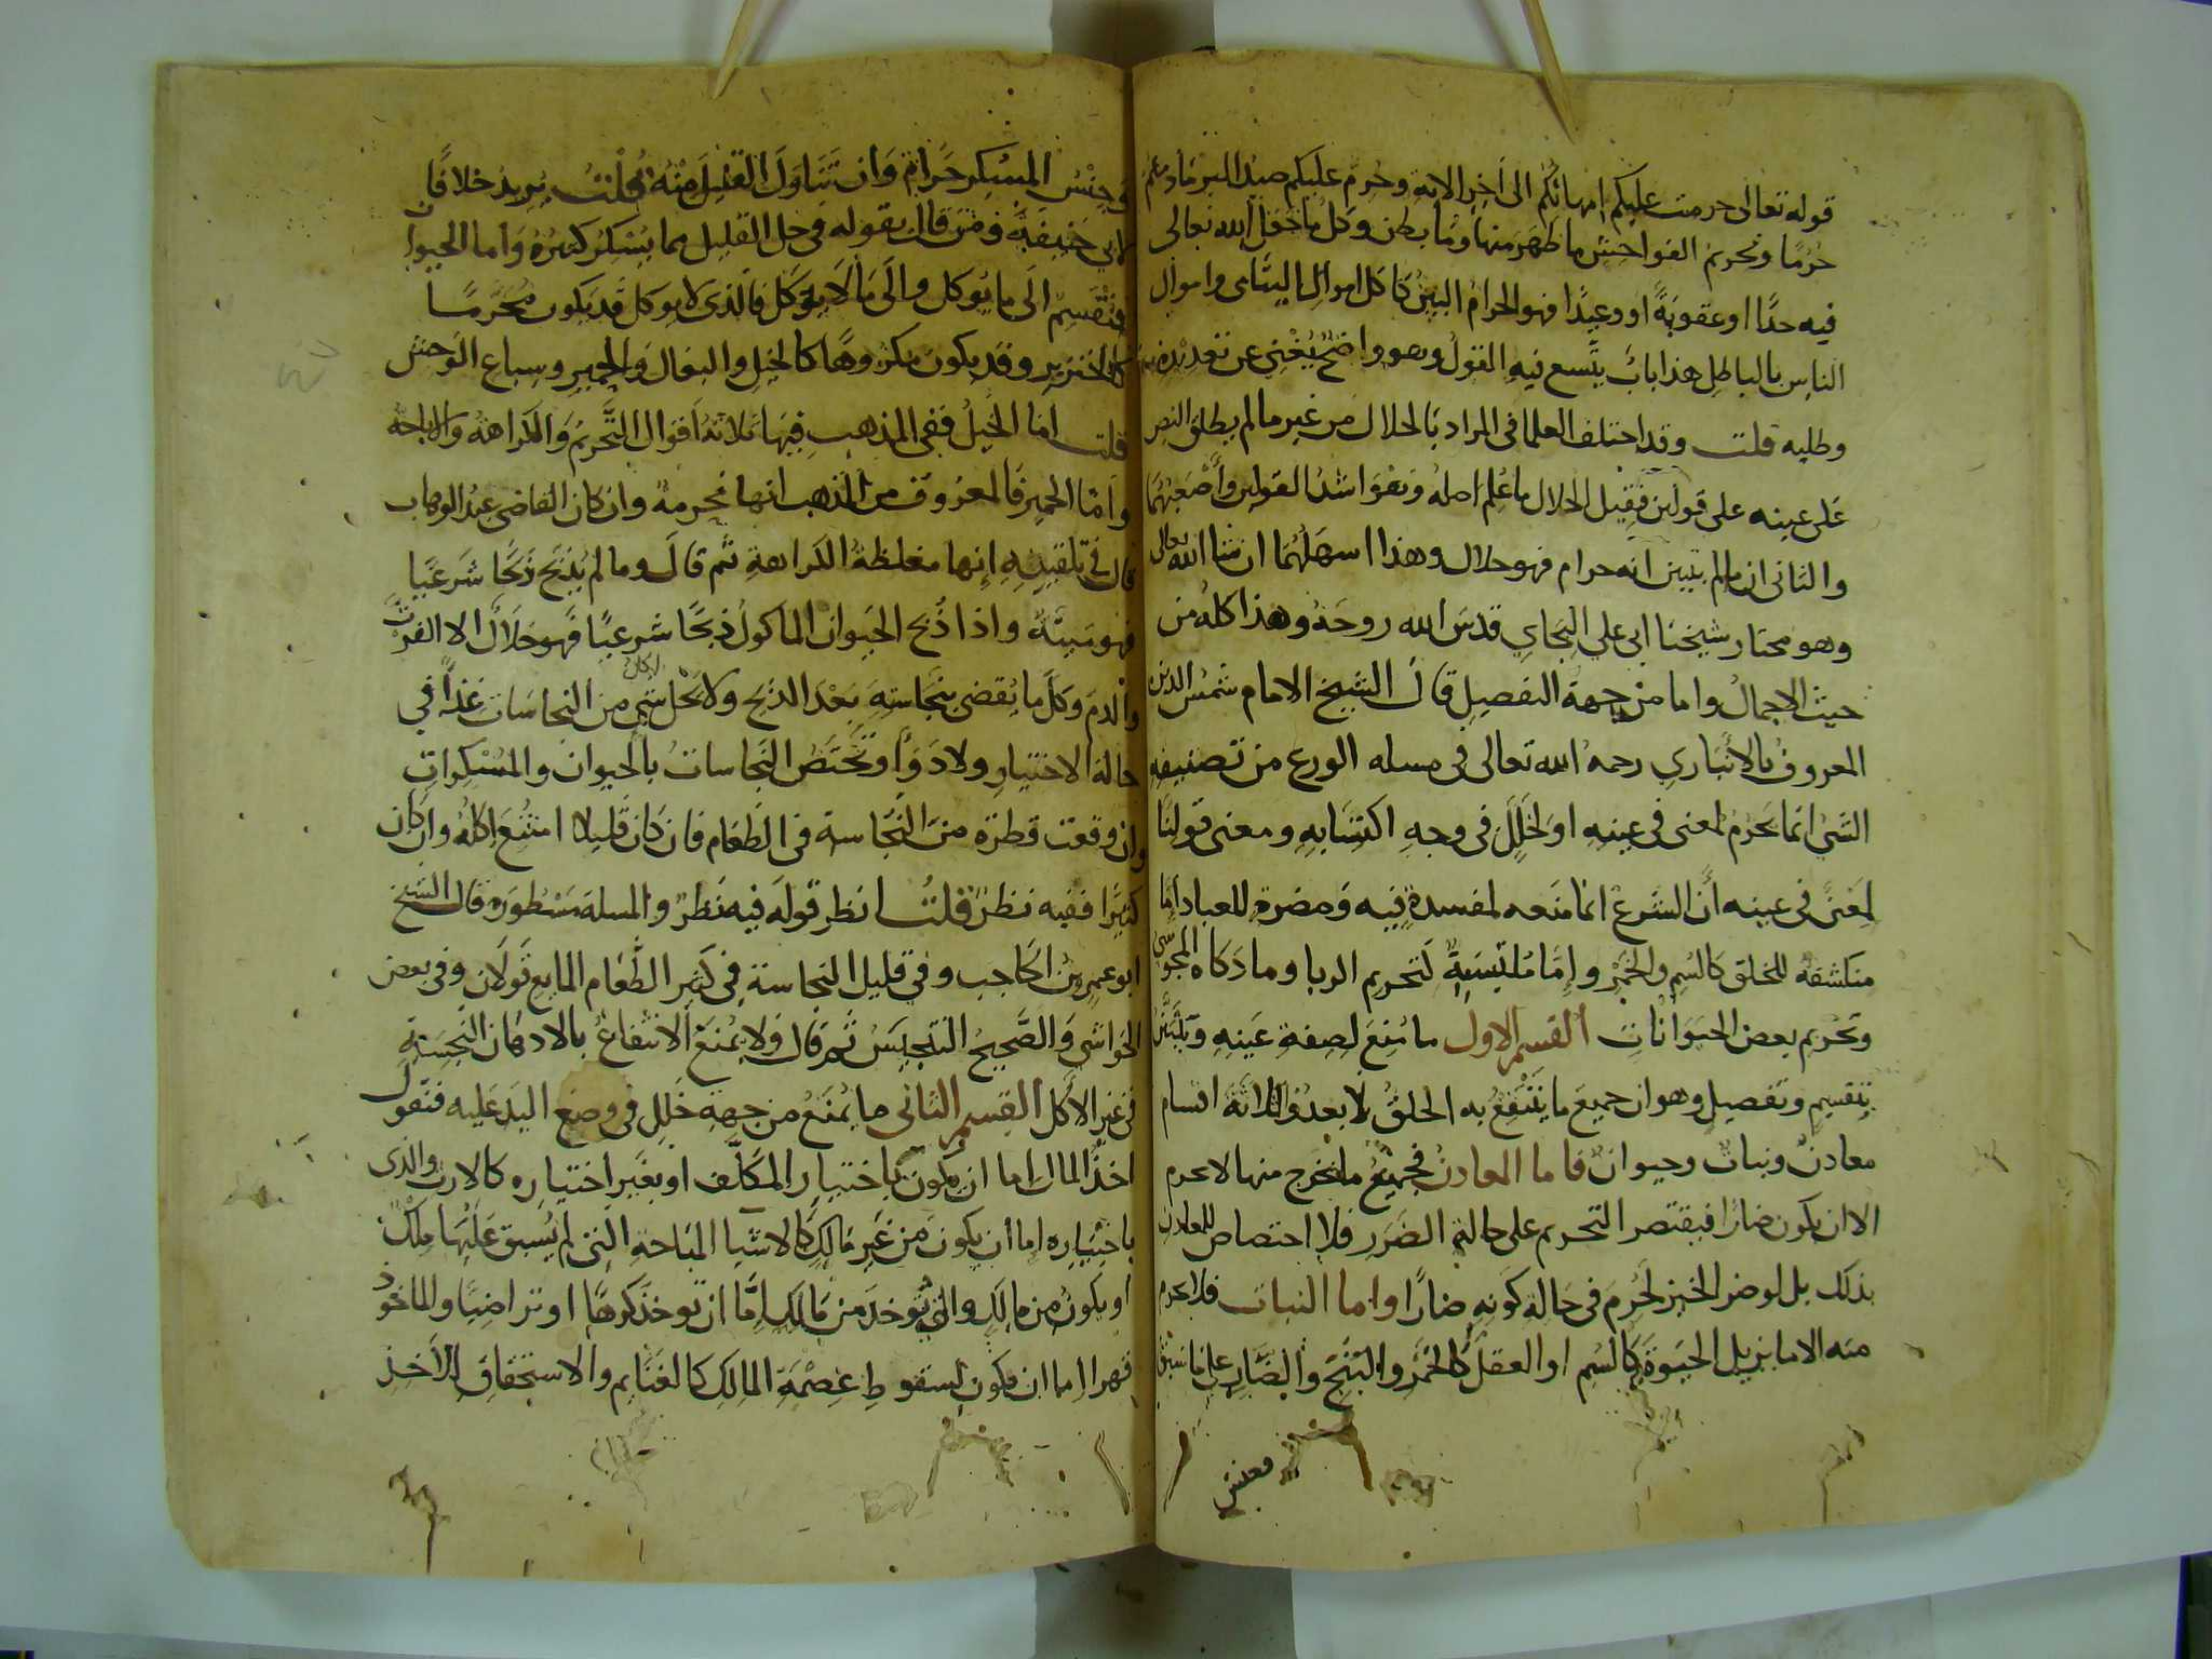 قوله تعالى حرمت عليكم امهاتكم الى اخر الاية وحرم عليكم صيد البر ما دمتم
حرما وتحريم الفواحش ما ظهر منها وما بطن وكل ما جعل الله تعالى
فيه حدا او عقوبة او وعيدا فهو الحرام البين كاكل اموال اليتامى واموال
الناس بالباطل هذا باب يتسع فيه القول وهو واضح يغني عن تعديده
وطلبه قلت وقد اختلف العلما في المراد بالحلال من غير ما لم يطلق النص
على عينه على قولين فقيل الحلال ما علم اصله وهو اشد القولين واصعبهما
والثاني ان ما لم يتبين انه حرام فهو حلال وهذا اسهلهما ان شا الله تعالى
وهو مختار شيخنا ابي علي البجاي قدس الله روحه وهذا كله من
حيث الاجمال واما من جهة التفصيل قال الشيخ الامام شمس الدين
المعروف بالانباري رحمه الله تعالى في مسله الورع من تصنيفه
الشي انما يحرم لمعنى في عينه او لخلل في وجه اكتسابه ومعنى قولنا
لمعنى في عينه ان الشرع انما منعه لمفسدة فيه ومضرة للعباد اما
منكشفة للخلق كالسم والخمر واما ملتبسة كتحريم الربا وما ذكاه المجوسي
وتحريم بعض الحيوانات القسم الاول ما منع لصفة عينه ويتبين
بتقسيم وتفصيل وهو ان جميع ما ينتفع به الخلق لا يعدو ثلاثة اقسام
معادن ونبات وحيوان فاما المعادن فجميع ما يخرج منها لا يحرم
الا ان يكون ضارا فيقتصر التحريم على حالة الضرر فلا اختصاص للمعادن
بذلك بل لو ضر الخبز لحرم في حالة كونه ضارا واما النبات فلا يحرم
منه الا ما يزيل الحيوة كالسم او العقل كالخمر والبنج والضار على ما سبق
فجنس
وجنس المسكر حرام وان تناول القليل منه قلت يريد خلافا
لابي حنيفة ومن قال بقوله في حل القليل مما يسكر كثيره واما الحيوان
فتقسم الى ما يوكل والى ما لا يوكل فالذي لا يوكل قد يكون محرما
كالخنزير وقد يكون مكروها كالخيل والبغال والحمير وسباع الوحش
قلت اما الخيل ففي المذهب فيها ثلاثة اقوال التحريم والكراهة والاباحة
واما الحمير فالمعروف من المذهب انها محرمة وان كان القاضي عبد الوهاب
قال في تلقينه انها مغلظة الكراهة ثم قال وما لم يذبح ذبحا شرعيا
فهو ميتة واذا ذبح الحيوان الماكول ذبحا شرعيا فهو حلال الا الفرث
والدم وكل ما يقضى بنجاسته بعد الذبح ولا يحل اكل شي من النجاسات غذا في
حالة الاختيار ولا دوا وتختص النجاسات بالحيوان والمسكرات
وان وقعت قطرة من النجاسة في الطعام فان كان قليلا امتنع اكله وان كان
كثيرا ففيه نظر قلت انظر قوله فيه نظر والمسلة مسطورة قال الشيخ
ابو عمرو بن الحاجب وفي قليل النجاسة في كثير الطعام المايع قولان وفي بعض
الحواشي والصحيح التنجيس ثم قال ولا يمنع الانتفاع بالادهان النجسة
في غير الاكل القسم الثاني ما يمنع من جهة خلل في وضع اليد عليه فنقول
اخذ المال اما ان يكون باختيار المكلف او بغير اختياره كالارث والذي
باختياره اما ان يكون من غير مالك كالاشيا المباحة التي لم يسبق عليها ملك
او يكون من مالك والذي يوخذ من مالك اما ان يوخذ كرها او تراضيا والماخوذ
قهرا اما ان يكون لسقوط عصمة المالك كالغنايم والاستحقاق الاخذ